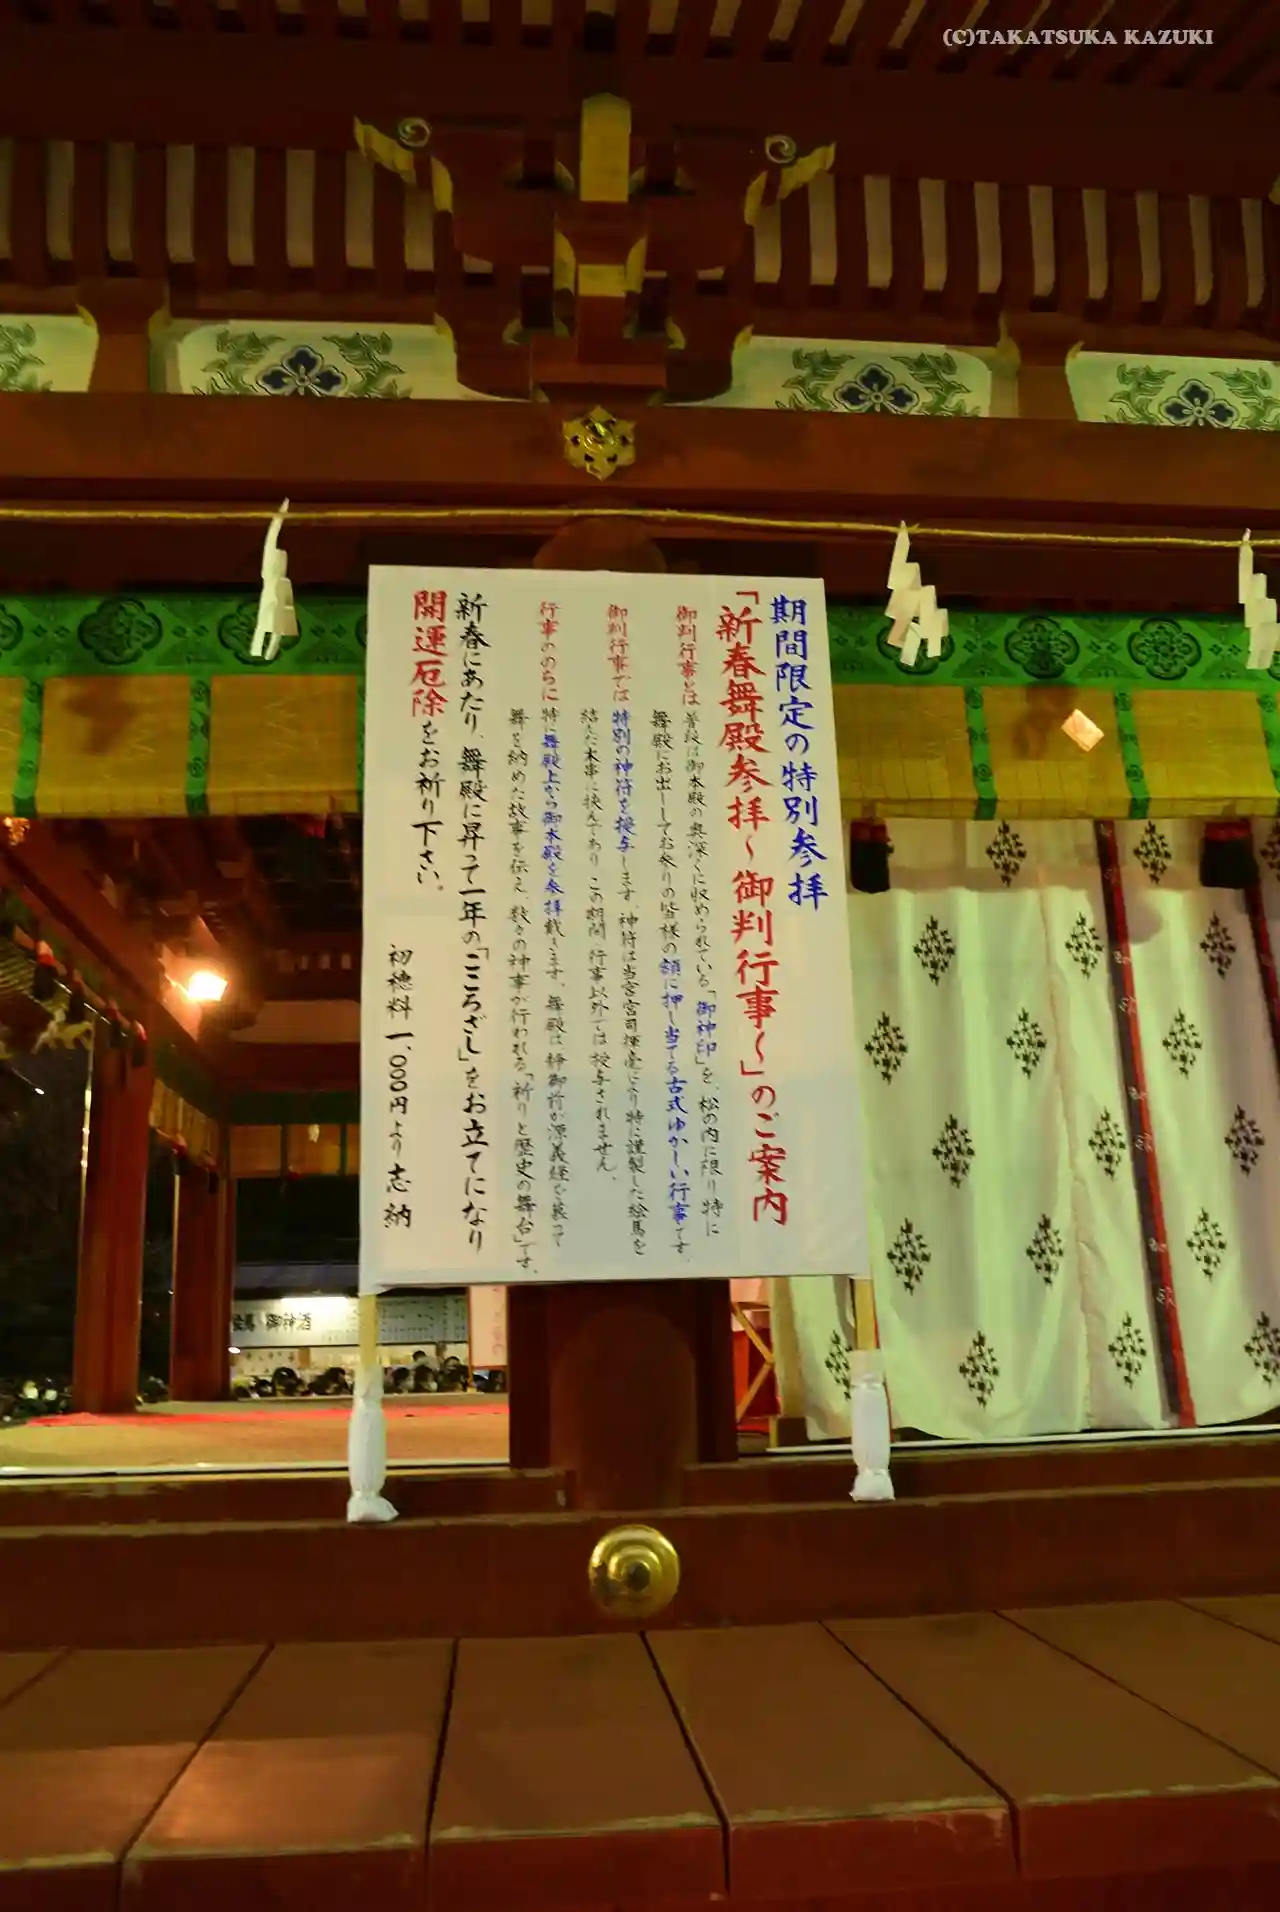 (C)TAKATSUKA KAZUKI
期間限定の特別参拝
「新春舞殿参拝～御判行事～」のご案内
御判行事とは 普段は御本殿の奥深くに収められている「御神印」を、松の内に限り特に
舞殿にお出ししてお参りの皆様の額に押し当てる古式ゆかしい行事です。
御判行事では 特別の神符を授与します。神符は当宮宮司揮毫により特に謹製した絵馬を
結えた木串に挟んであり、この期間・行事以外では授与されません。
行事ののちに 特に舞殿上から御本殿を参拝戴きます。舞殿は、静御前が源義経を慕って
舞を納めた故事を伝え、数々の神事が行われる「祈りと歴史の舞台」です。
新春にあたり、舞殿に昇って一年の「こころざし」をお立てになり
開運厄除をお祈り下さい。
初穂料 一、〇〇〇円より志納
御神酒